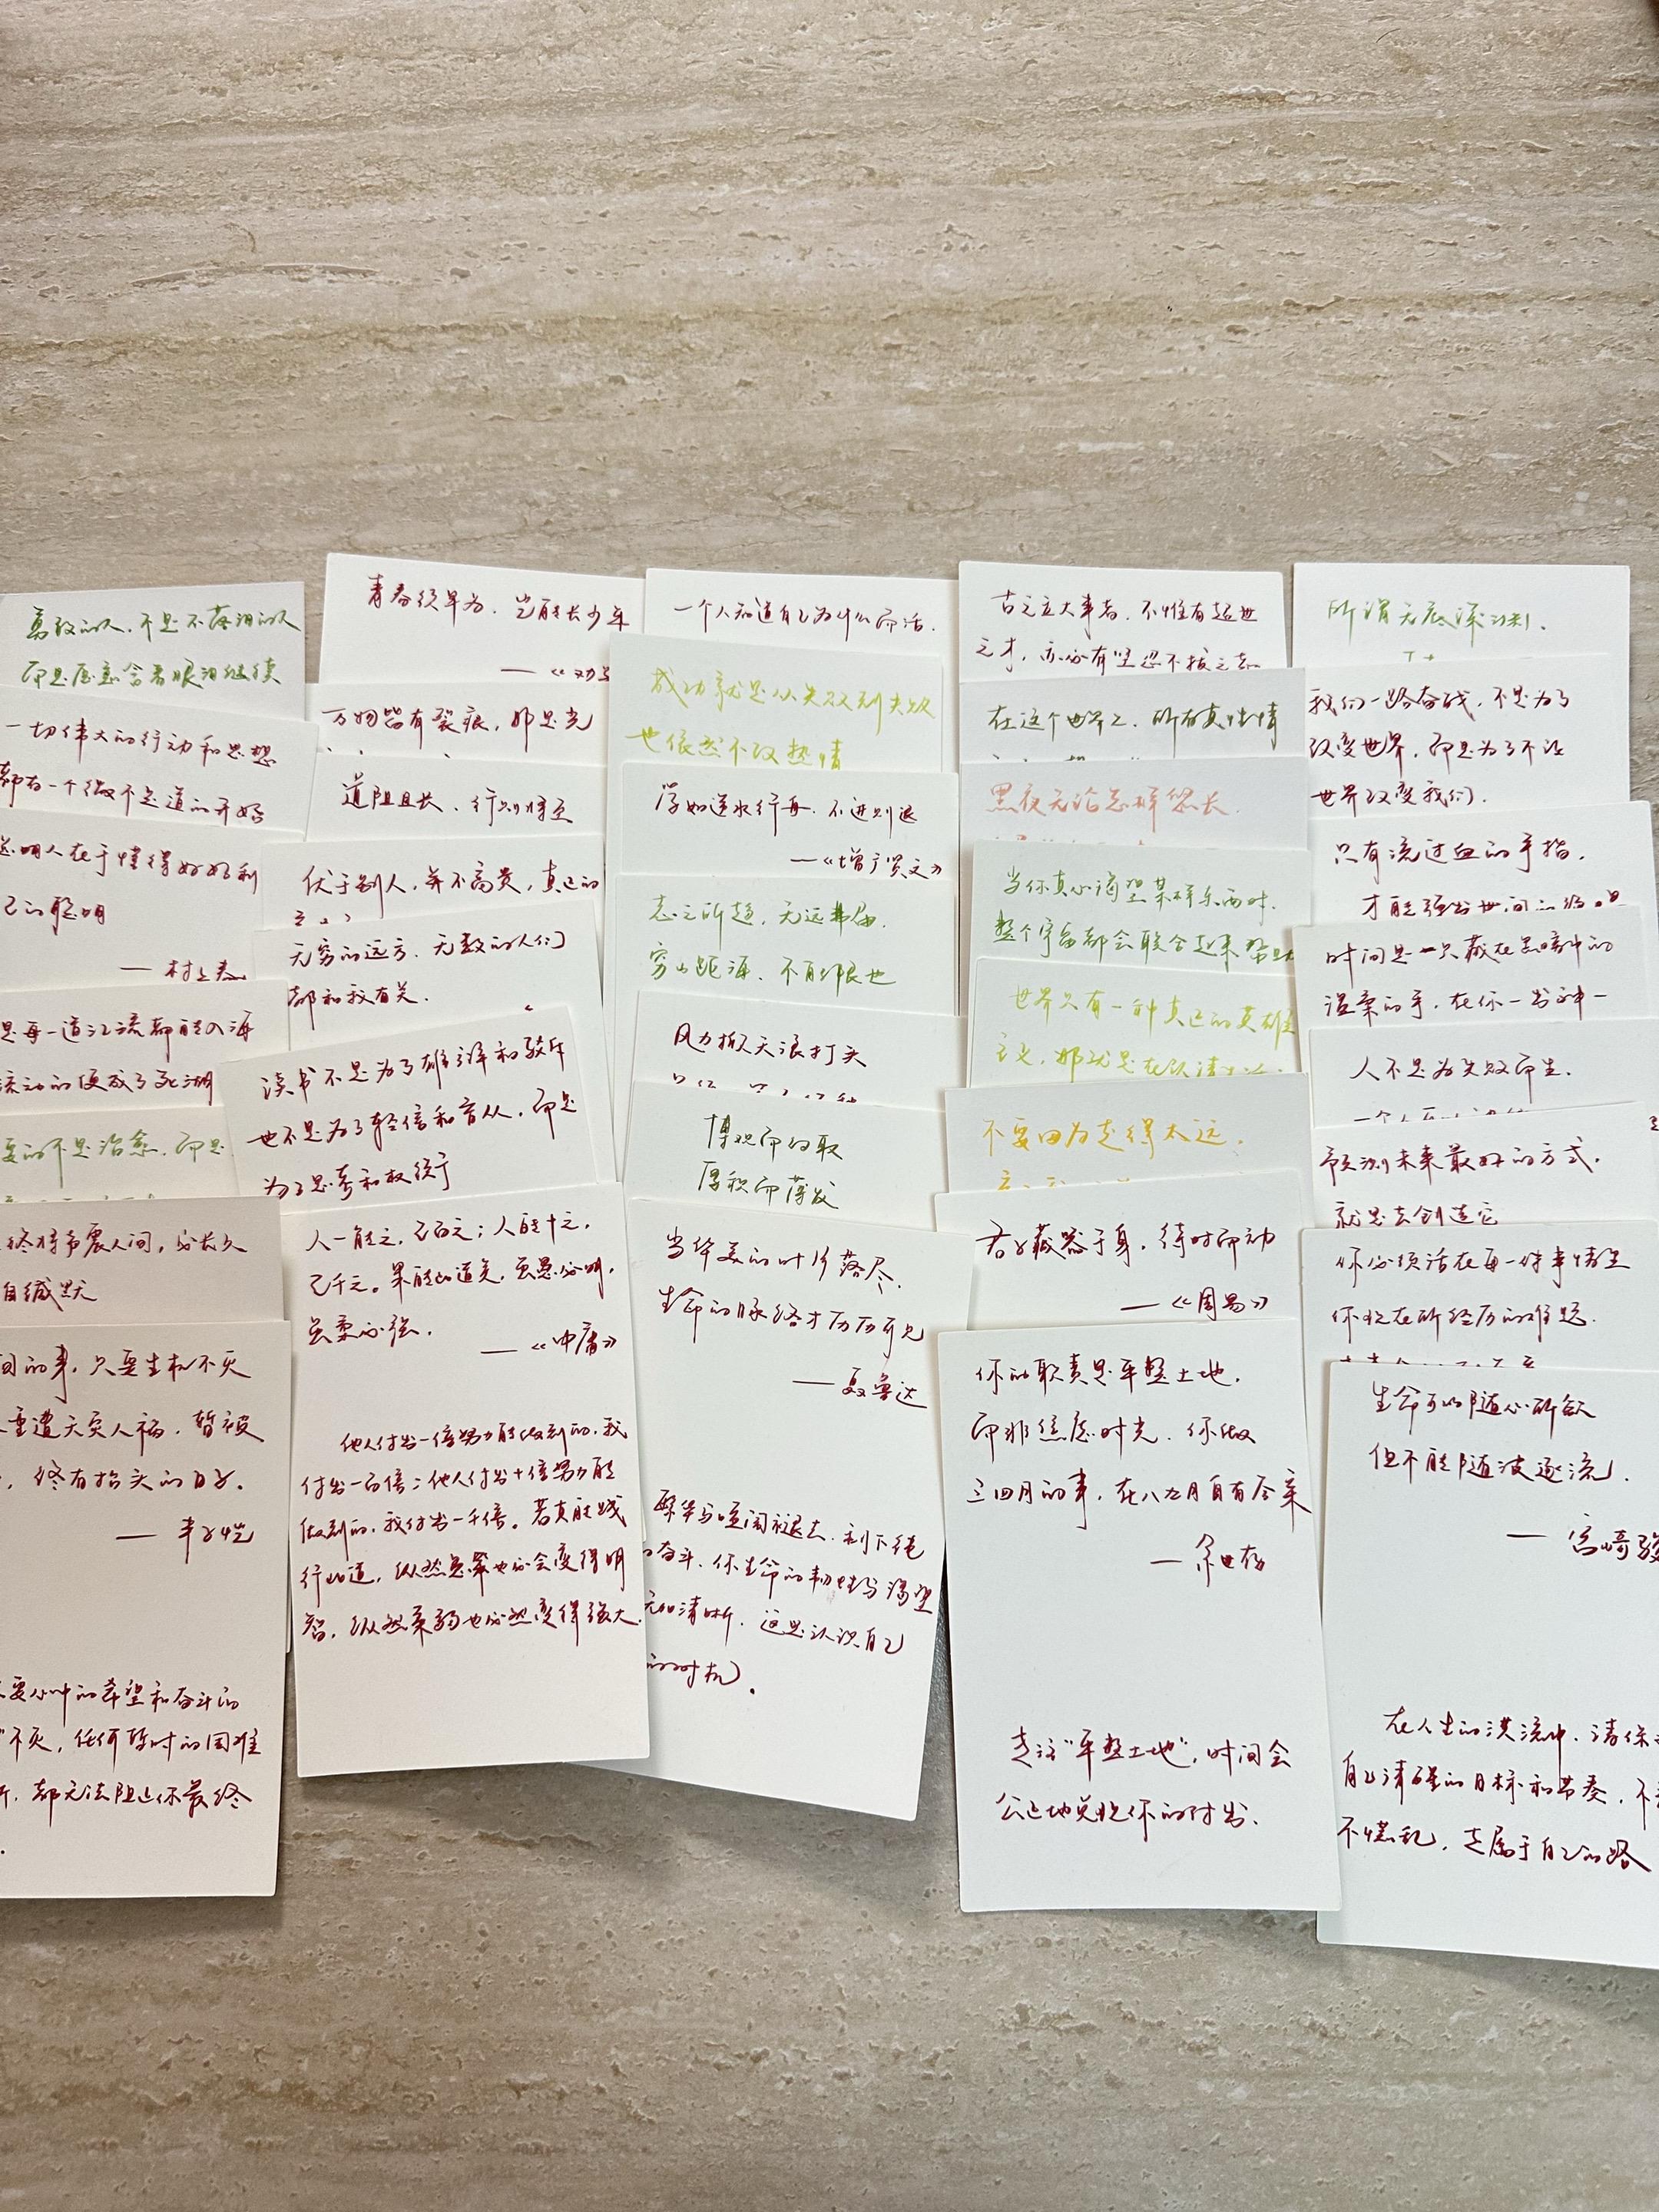 勇敢的人，不是不落泪的人
而是愿意含着眼泪继续
一切伟大的行动和思想
都有一个微不足道的开始
聪明人在于懂得好好利
己的聪明
— 村上春
是每一道江流都能入海
流动的便成了死湖
要的不是治愈，而是
终将声震人间，必长久
自缄默
间的事，只要生机不灭
重遭天灾人祸，暂被
，终有抬头的日子．
— 丰子恺
要心中的希望和奋斗的
"不灭，任何暂时的困难
，都无法阻止你最终
青春须早为，岂能长少年
—《劝学
万物皆有裂痕，那是光
道阻且长，行则将至
优于别人，并不高贵，真正的
无穷的远方，无数的人们
都和我有关．
读书不是为了雄辩和驳斥
也不是为了轻信和盲从，而是
为了思考和权衡
人一能之，己百之；人能十之，
己千之。果能此道矣，虽愚必明，
虽柔必强．
—《中庸》
他人付出一倍努力能做到的，我
付出一百倍；他人付出十倍努力能
做到的，我付出一千倍。若真能践
行此道，纵然愚笨也必会变得明
智，纵然柔弱也必然变得强大．
一个人知道自己为什么而活．
成功就是从失败到失败
也依然不改热情
学如逆水行舟，不进则退
—《增广贤文》
志之所趋，无远弗届．
穷山距海，不能限也
风力掀天浪打头
博观而约取
厚积而薄发
当华美的叶片落尽．
生命的脉络才历历可见
— 聂鲁达
繁华与喧闹褪去，剩下纯
奋斗，你生命的韧性与渴望
无比清晰，这是认识自己
的时机．
古之立大事者，不惟有超世
之才，亦必有坚忍不拔之志
在这个世界上，所有真性情
黑夜无论怎样悠长
当你真心渴望某样东西时．
整个宇宙都会联合起来帮助
世界只有一种真正的英雄
主义，那就是在认清生活
不要因为走得太远．
君子藏器于身，待时而动
—《周易》
你的职责是平整土地．
而非焦虑时光．你做
三四月的事，在八九月自有答案
— 余世存
专注"平整土地"，时间会
公正地兑现你的付出．
所谓无底深渊．
我们一路奋战，不是为了
改变世界，而是为了不让
世界改变我们．
只有流过血的手指．
才能弹出世间的绝唱
时间是一只藏在黑暗中的
温柔的手，在你一出神一
人不是为失败而生．
预测未来最好的方式．
就是去创造它
你必须活在每一件事情里
你现在所经历的难题．
生命可以随心所欲
但不能随波逐流．
— 宫崎骏
在人生的洪流中，请保
自己清醒的目标和节奏，不
不慌乱，走属于自己的路